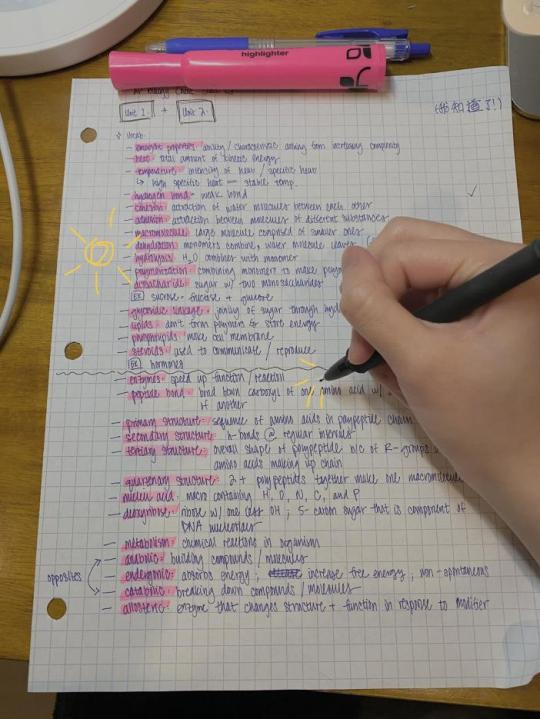 highlighter
Unit 1 + Unit 2
(我知道了!)
Vocab
- emergent properties: arising from increasing complexity
- heat: total amount of kinetic energy
- temperature: intensity of heat / specific heat
↳ high specific heat = stable temp.
- hydrogen bond: weak bond
- cohesion: attraction of water molecules between each other
- adhesion: attraction between molecules of different substances
- macromolecule: large molecule comprised of smaller ones
- dehydration: monomers combine, water molecule leaves
- hydrolysis: H2O combines with monomer
- polymerization: combining monomers to make
- disaccharide: sugar w/ two monosaccharides
EX sucrose = fructose + glucose
- glycosidic linkage: joining of sugar through
- lipids: don't form polymers & store energy
- phospholipids: make cell membrane
- steroids: used to communicate / reproduce
EX hormones
- enzymes: speed up function / reaction
- peptide bond: bond btwn carboxyl of one amino acid w/
of another
- primary structure: sequence of amino acids in polypeptide chain
- secondary structure: h-bonds @ regular intervals
- tertiary structure: overall shape of polypeptide b/c of R-groups
amino acids making up chain
- quaternary structure: 2+ polypeptides together make one macromolecule
- nucleic acid: macro containing H, O, N, C, and P
- deoxyribose: ribose w/ one less OH ; 5-carbon sugar that is component of
DNA nucleotides
- metabolism: chemical reactions in organisms
- anabolic: building compounds / molecules
opposites - endergonic: absorbs energy ; increase free energy ; non-spontaneous
- catabolic: breaking down compounds / molecules
- allosteric: enzyme that changes structure + function in response to modifier